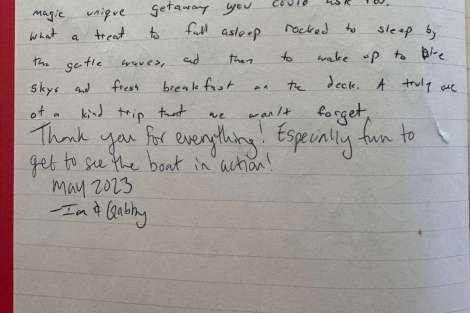 magic unique getaway you could ask for.
what a treat to fall asleep rocked to sleep by
the gentle waves, and then to wake up to blue
skys and fresh breakfast on the deck. A truly one
of a kind trip that we won't forget
Thank you for everything! Especially fun to
get to see the boat in action!
May 2023
- Ian & Gabby